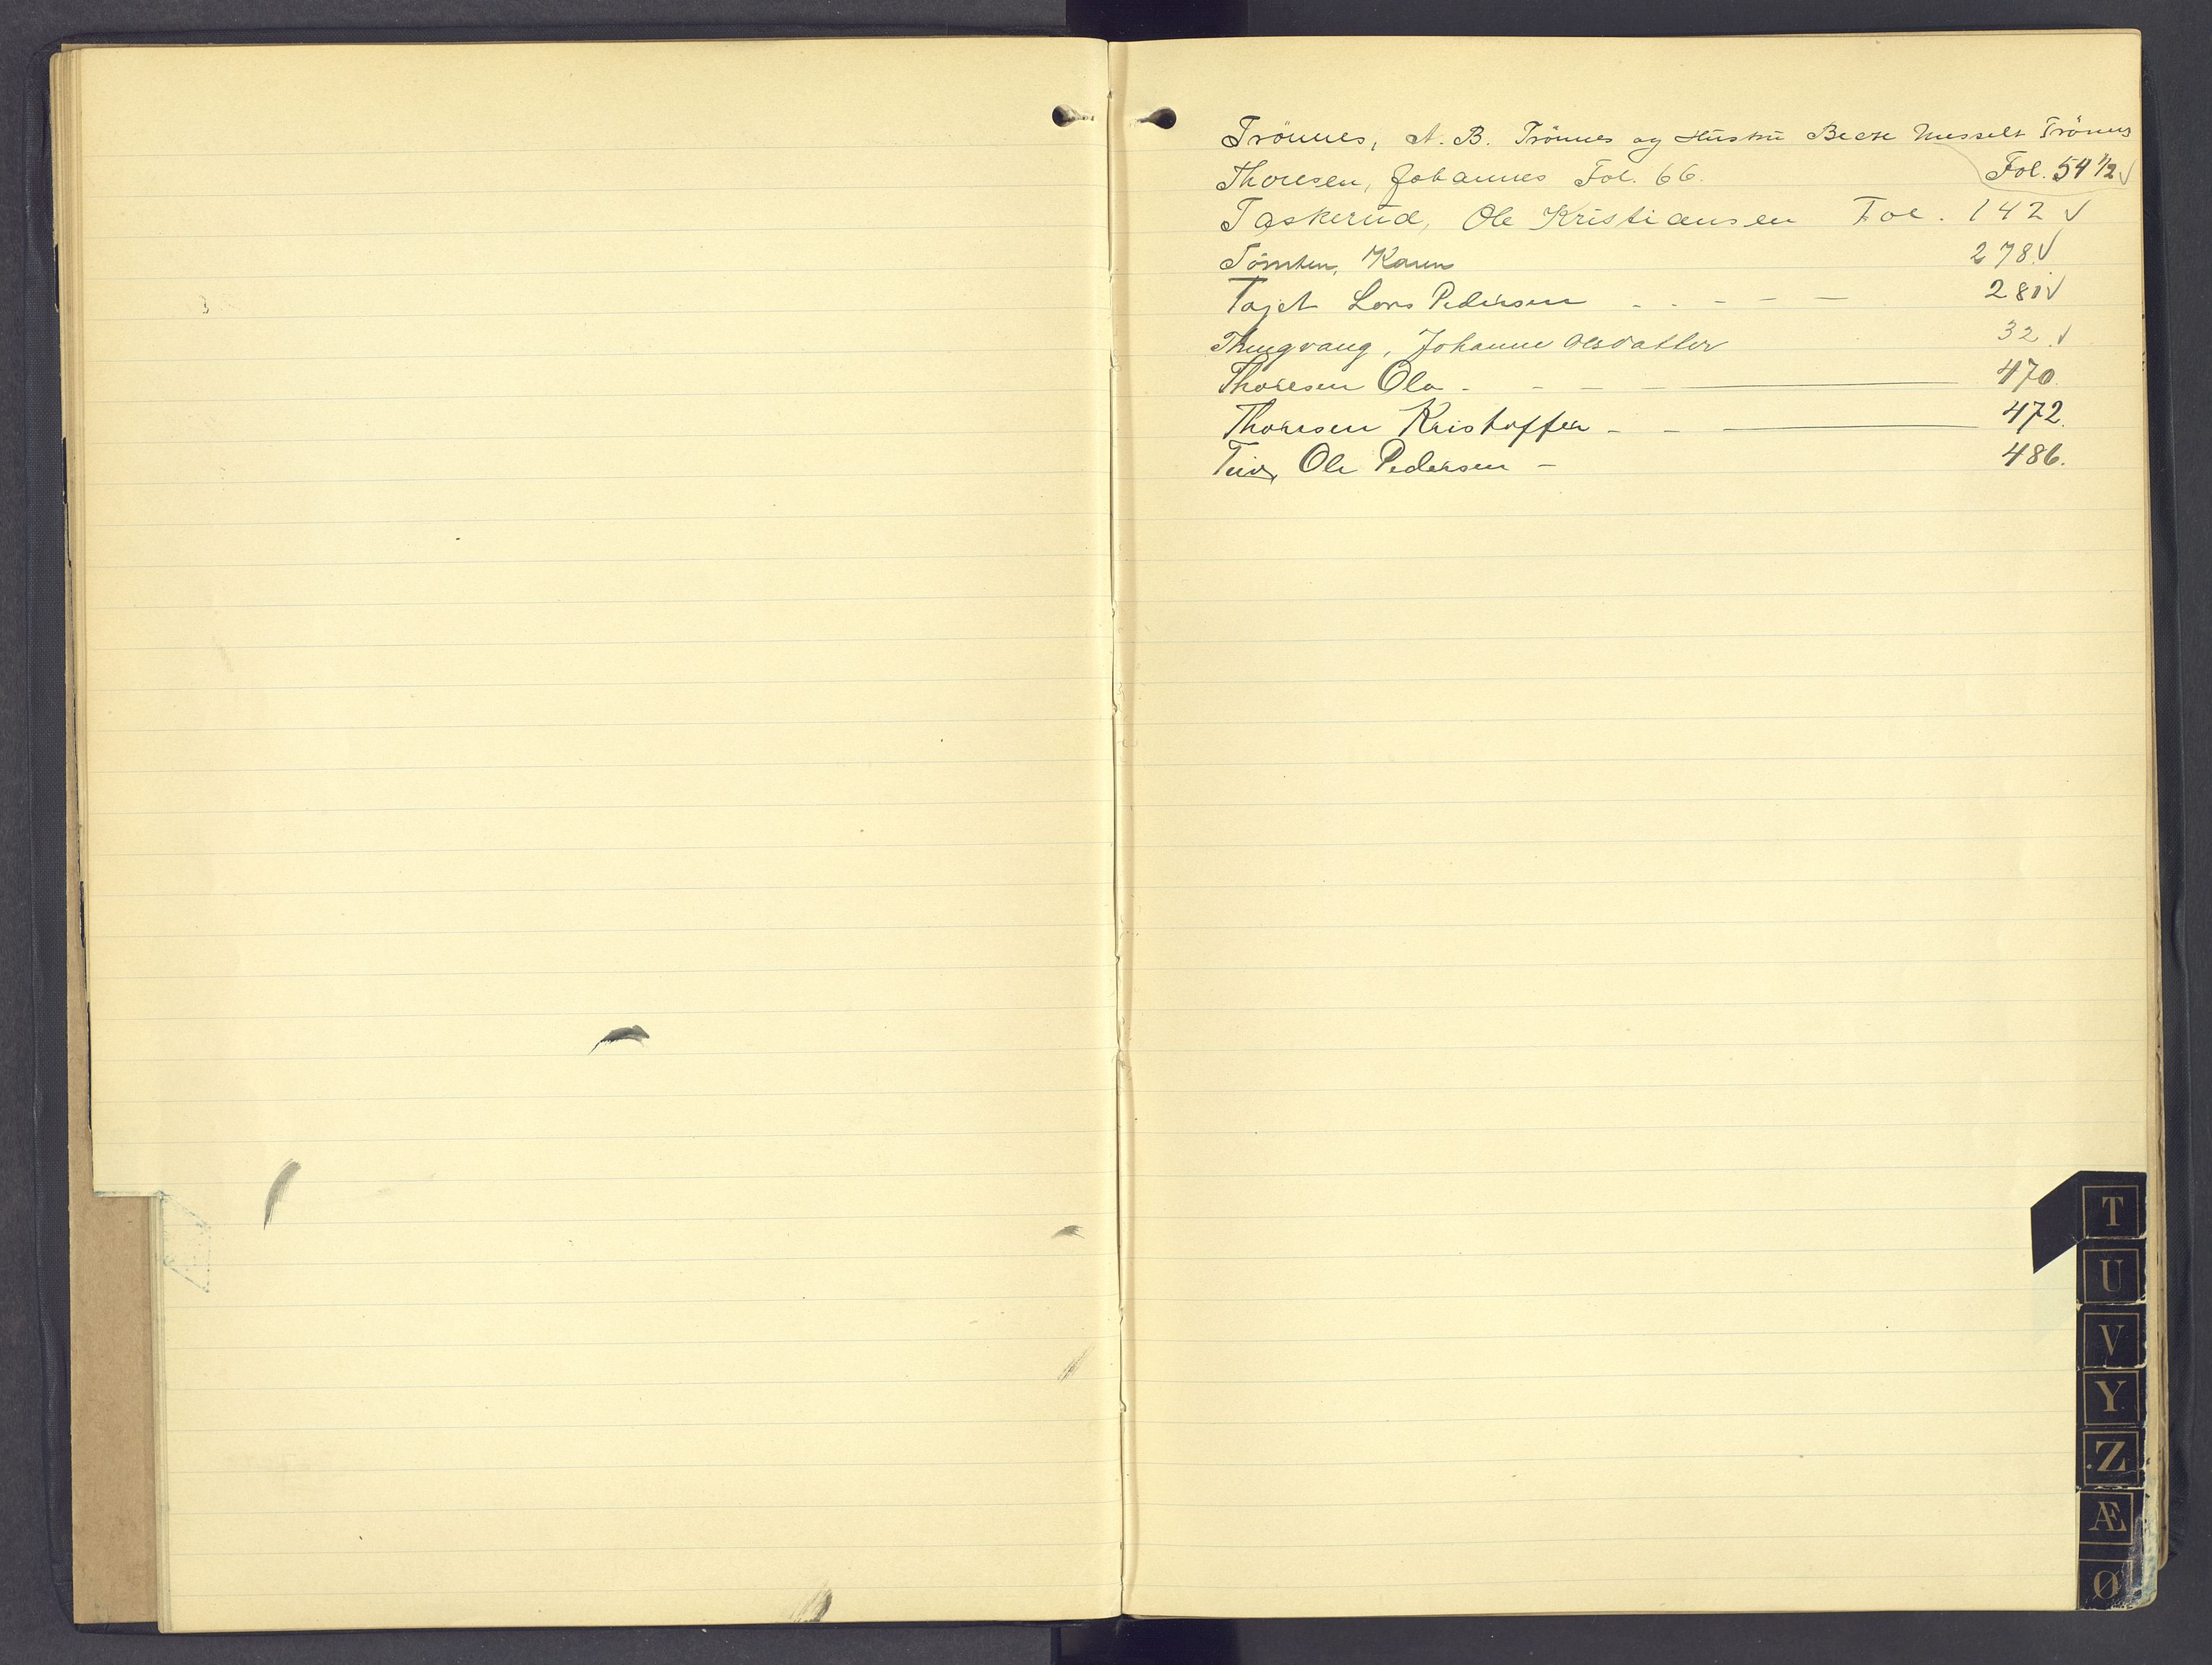 Trönnes, A. B. Trönnes og Hustru Beate Messelt Trönnes
Fol. 54 1/2 √
Thoresen, Johannes Fol. 66.
Taskerud, Ole Kristiansen Fol. 142 √
Tömten, Karen 278 √
Tajet Lars Pedersen - - - - - 281 √
Thingvang, Johanne Olsdatter 32 √
Thoresen Ola - - - 470.
Thoresen Kristoffer - - 472.
Ole Pedersen - 486.
T
U
V
Y
Z
Æ
Ø